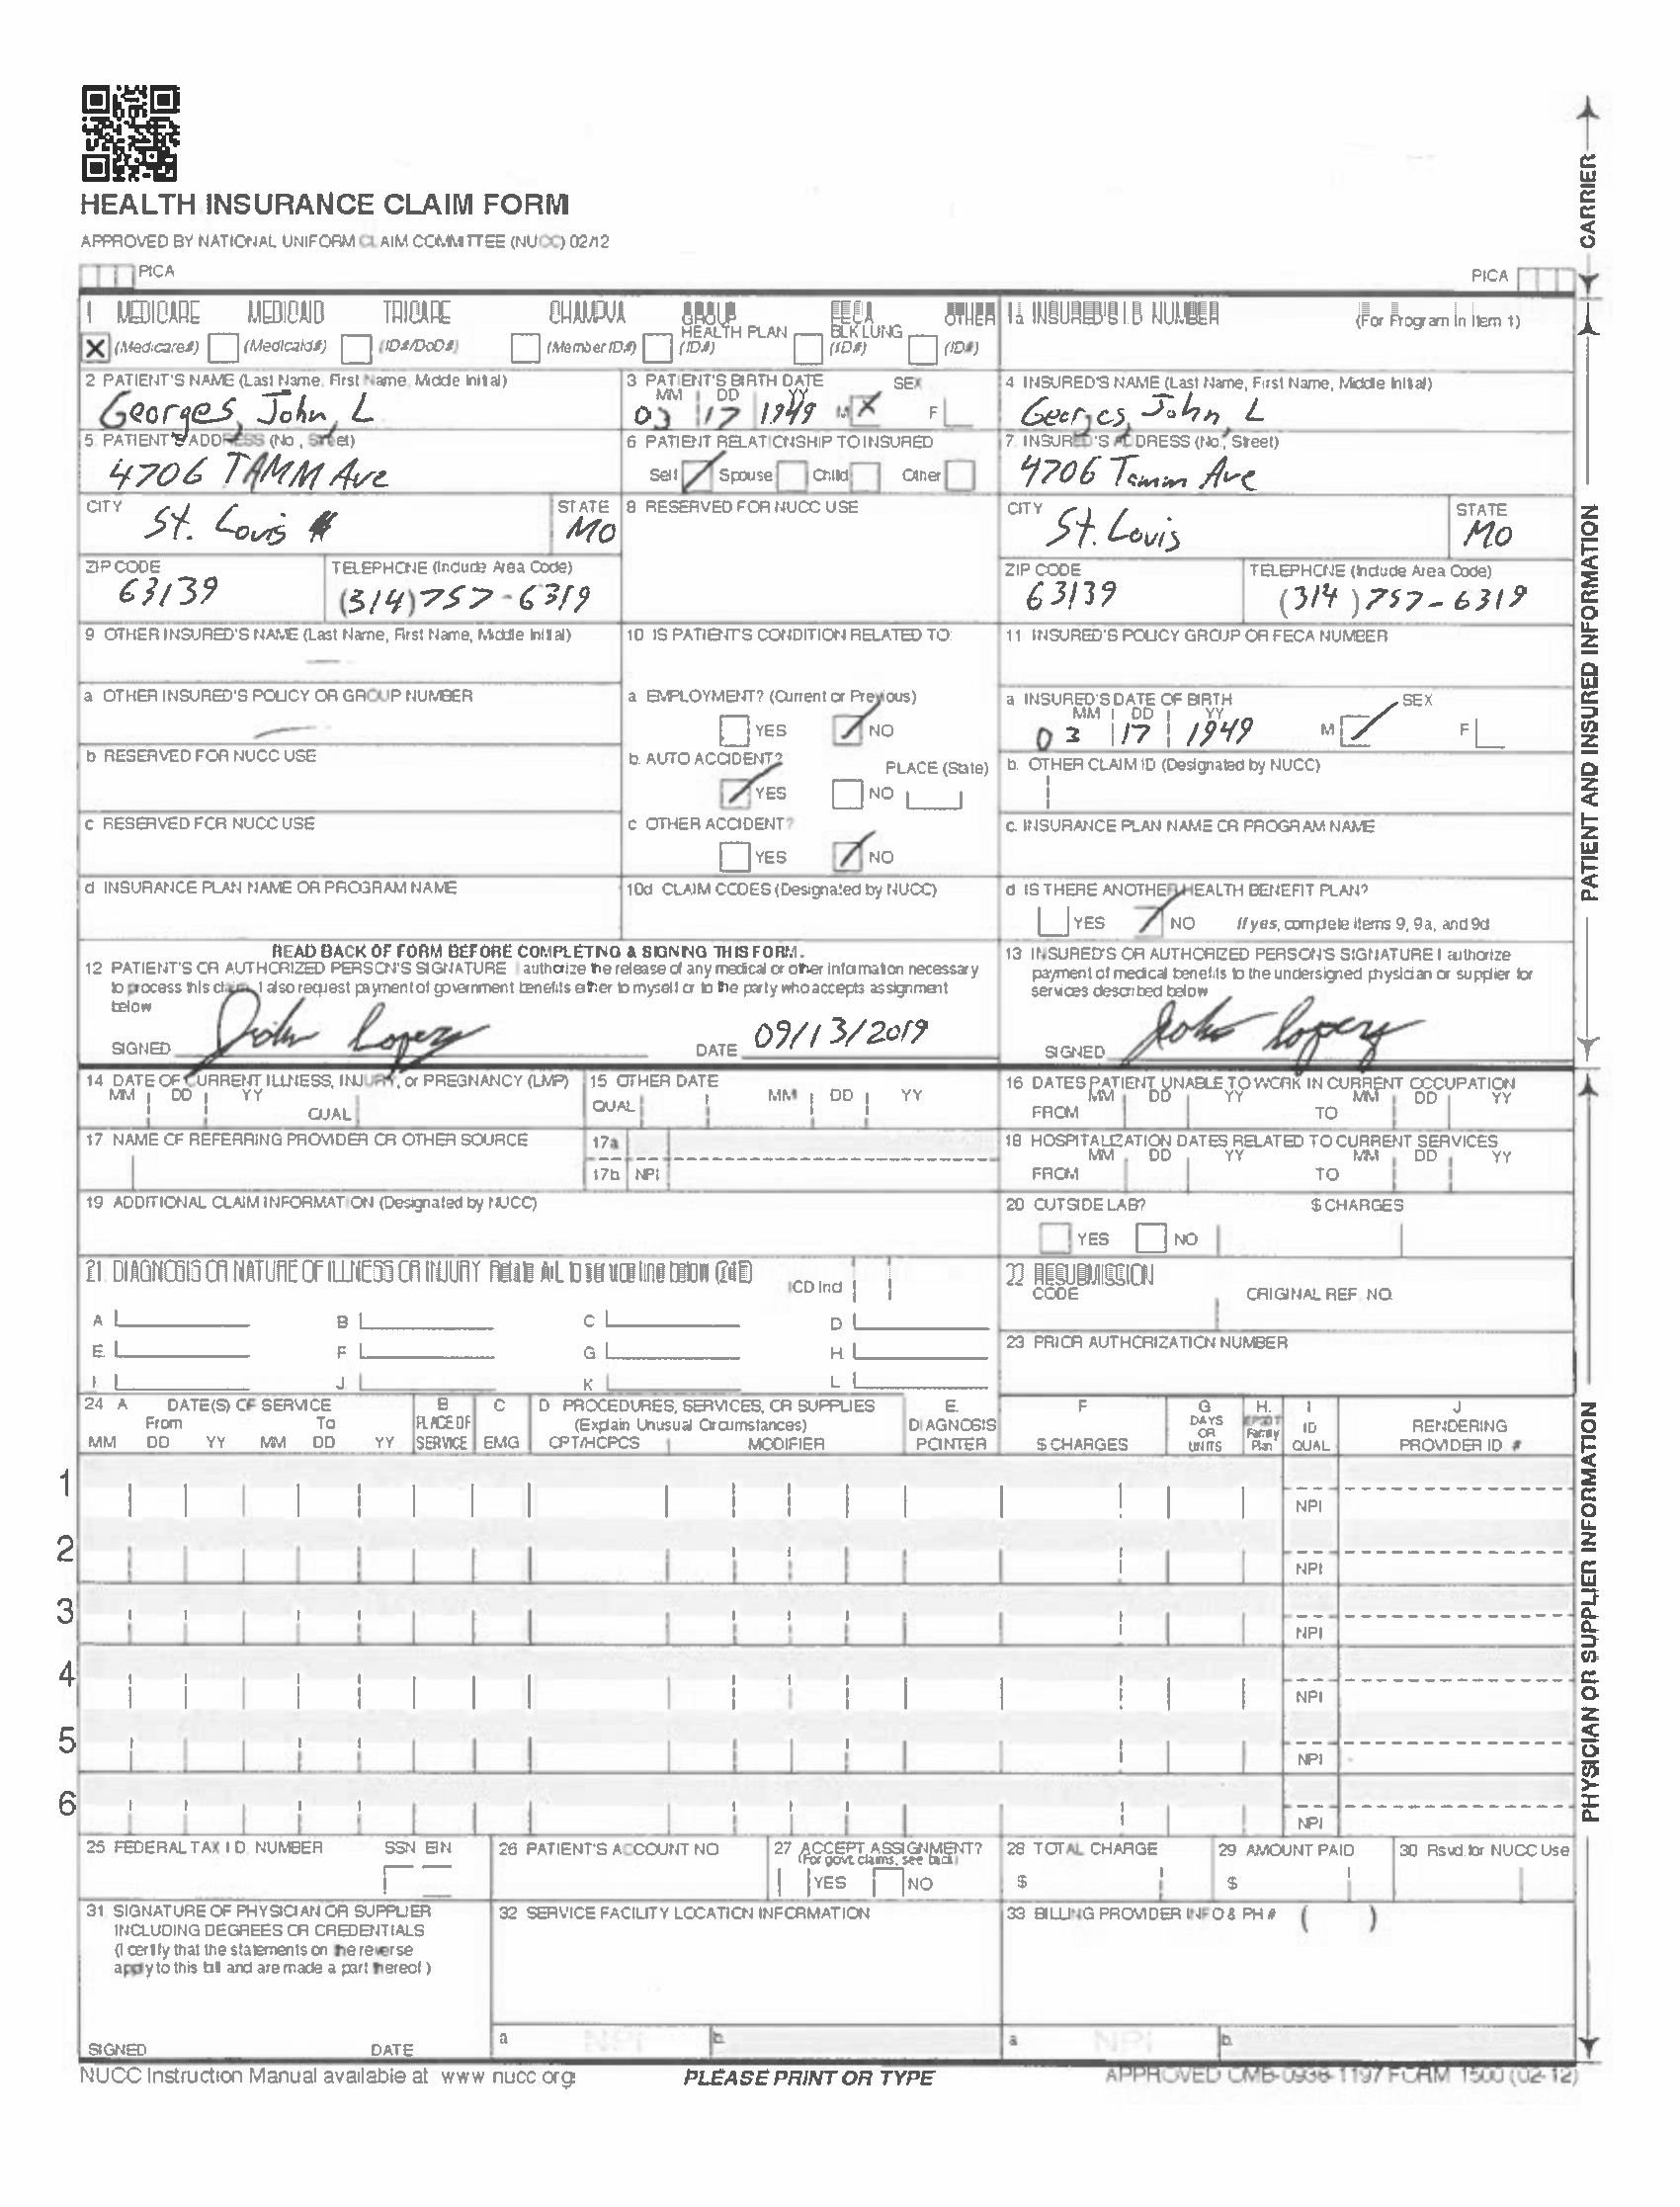 HEALTH INSURANCE CLAIM FORM
APPROVED BY NATIONAL UNIFORM CLAIM COMMITTEE (NUCC) 02/12
PICA PICA
CARRIER
1 MEDICARE MEDICAID TRICARE CHAMPVA GROUP HEALTH PLAN FECA BLK LUNG OTHER
X (Medicare#) (Medicaid#) (ID#/DoD#) (Member ID#) (ID#) (ID#) (ID#)
1a INSURED'S I.D. NUMBER (For Program In Item 1)
2 PATIENT'S NAME (Last Name, First Name, Middle Initial)
Georges, John, L
3 PATIENT'S BIRTH DATE SEX
MM DD YY
03 17 1949 M X F
4 INSURED'S NAME (Last Name, First Name, Middle Initial)
Georges, John, L
5 PATIENT'S ADDRESS (No., Street)
4706 TAMM Ave
6 PATIENT RELATIONSHIP TO INSURED
Self Spouse Child Other
7. INSURED'S ADDRESS (No., Street)
4706 Tamm Ave
CITY STATE
St. Louis MO
8 RESERVED FOR NUCC USE
CITY STATE
St. Louis MO
ZIP CODE TELEPHONE (Include Area Code)
63139 (314) 757-6319
ZIP CODE TELEPHONE (Include Area Code)
63139 (314) 757-6319
9 OTHER INSURED'S NAME (Last Name, First Name, Middle Initial)
10 IS PATIENT'S CONDITION RELATED TO:
11 INSURED'S POLICY GROUP OR FECA NUMBER
a OTHER INSURED'S POLICY OR GROUP NUMBER
a EMPLOYMENT? (Current or Previous)
YES NO
a INSURED'S DATE OF BIRTH SEX
MM DD YY
03 17 1949 M F
b RESERVED FOR NUCC USE
b. AUTO ACCIDENT? PLACE (State)
YES NO
b. OTHER CLAIM ID (Designated by NUCC)
c RESERVED FOR NUCC USE
c OTHER ACCIDENT?
YES NO
c. INSURANCE PLAN NAME OR PROGRAM NAME
d INSURANCE PLAN NAME OR PROGRAM NAME
10d CLAIM CODES (Designated by NUCC)
d IS THERE ANOTHER HEALTH BENEFIT PLAN?
YES NO If yes, complete items 9, 9a, and 9d
PATIENT AND INSURED INFORMATION
READ BACK OF FORM BEFORE COMPLETING & SIGNING THIS FORM.
12 PATIENT'S OR AUTHORIZED PERSON'S SIGNATURE I authorize the release of any medical or other information necessary
to process this claim. I also request payment of government benefits either to myself or to the party who accepts assignment
below
SIGNED John Lopez DATE 09/13/2019
13 INSURED'S OR AUTHORIZED PERSON'S SIGNATURE I authorize
payment of medical benefits to the undersigned physician or supplier for
services described below
SIGNED John Lopez
14 DATE OF CURRENT ILLNESS, INJURY, or PREGNANCY (LMP)
MM DD YY QUAL
15 OTHER DATE
QUAL MM DD YY
16 DATES PATIENT UNABLE TO WORK IN CURRENT OCCUPATION
MM DD YY MM DD YY
FROM TO
17 NAME OF REFERRING PROVIDER OR OTHER SOURCE
17a
17b NPI
18 HOSPITALIZATION DATES RELATED TO CURRENT SERVICES
MM DD YY MM DD YY
FROM TO
19 ADDITIONAL CLAIM INFORMATION (Designated by NUCC)
20 OUTSIDE LAB? $ CHARGES
YES NO
21. DIAGNOSIS OR NATURE OF ILLNESS OR INJURY Relate A-L to service line below (24E) ICD Ind
A B C D
E. F G H.
I. J. K L
22 RESUBMISSION
CODE ORIGINAL REF. NO.
23 PRIOR AUTHORIZATION NUMBER
24 A DATE(S) OF SERVICE B C D PROCEDURES, SERVICES, OR SUPPLIES E. F G H. I J
From To PLACE OF (Explain Unusual Circumstances) DIAGNOSIS DAYS OR EPSDT Family ID RENDERING
MM DD YY MM DD YY SERVICE EMG CPT/HCPCS MODIFIER POINTER $ CHARGES UNITS Plan QUAL PROVIDER ID #
1 NPI
2 NPI
3 NPI
4 NPI
5 NPI
6 NPI
PHYSICIAN OR SUPPLIER INFORMATION
25 FEDERAL TAX I.D. NUMBER SSN EIN
26 PATIENT'S ACCOUNT NO
27 ACCEPT ASSIGNMENT?
(For govt. claims, see back)
YES NO
28 TOTAL CHARGE
$
29 AMOUNT PAID
$
30 Rsvd. for NUCC Use
31 SIGNATURE OF PHYSICIAN OR SUPPLIER
INCLUDING DEGREES OR CREDENTIALS
(I certify that the statements on the reverse
apply to this bill and are made a part thereof.)
SIGNED DATE
32 SERVICE FACILITY LOCATION INFORMATION
a NPI b.
33 BILLING PROVIDER INFO & PH # ( )
a NPI b.
NUCC Instruction Manual available at www nucc org
PLEASE PRINT OR TYPE
APPROVED OMB-0938-1197 FORM 1500 (02-12)